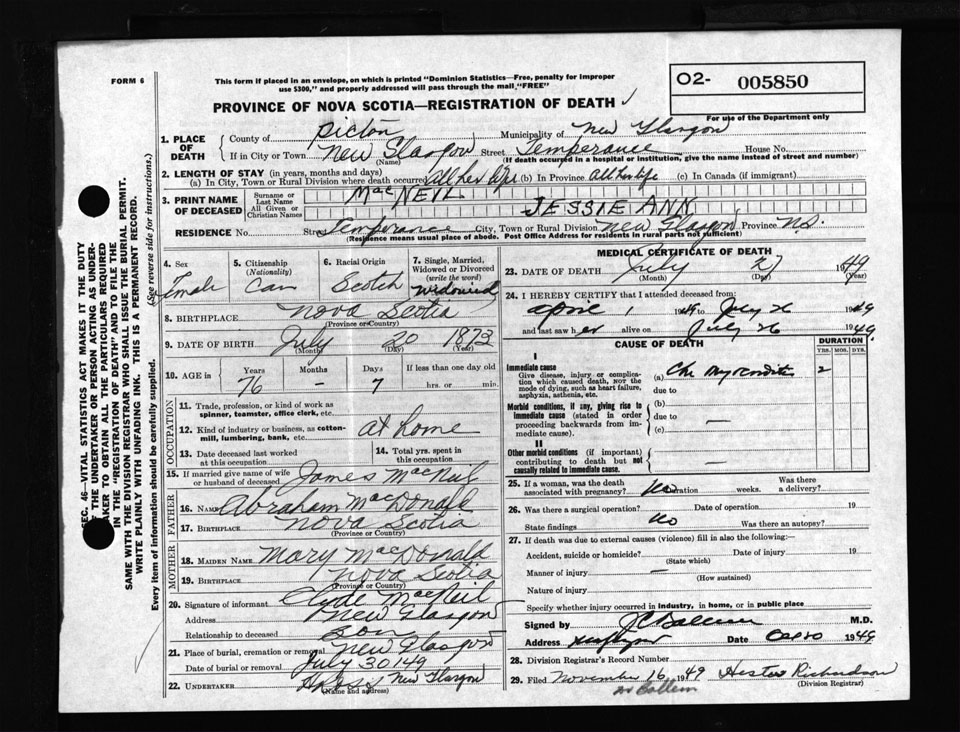 FORM 6
This form if placed in an envelope, on which is printed "Dominion Statistics—Free, penalty for improper
use $300," and properly addressed will pass through the mail, "FREE"
O2- 005850
For use of the Department only
PROVINCE OF NOVA SCOTIA—REGISTRATION OF DEATH ✓
1. PLACE OF DEATH
County of Pictou Municipality of New Glasgow
If in City or Town New Glasgow Street Temperance House No.
(Name) (If death occurred in a hospital or institution, give the name instead of street and number)
2. LENGTH OF STAY (in years, months and days)
(a) In City, Town or Rural Division where death occurred all her life (b) In Province all her life (c) In Canada (if immigrant)
3. PRINT NAME OF DECEASED
Surname or Last Name MacNEIL
All Given or Christian Names JESSIE ANN
RESIDENCE No. Street Temperance City, Town or Rural Division New Glasgow Province N.S.
(Residence means usual place of abode. Post Office Address for residents in rural parts not sufficient)
4. Sex Female
5. Citizenship (Nationality) Can
6. Racial Origin Scotch
7. Single, Married, Widowed or Divorced (write the word) Widowed
8. BIRTHPLACE Nova Scotia
(Province or Country)
9. DATE OF BIRTH July 20 1873
(Month) (Day) (Year)
10. AGE in Years 76 Months — Days 7 If less than one day old hrs. or min.
OCCUPATION
11. Trade, profession, or kind of work as spinner, teamster, office clerk, etc.
12. Kind of industry or business, as cotton-mill, lumbering, bank, etc. at home
13. Date deceased last worked at this occupation
14. Total yrs. spent in this occupation
15. If married give name of wife or husband of deceased James MacNeil
FATHER
16. NAME Abraham MacDonald
17. BIRTHPLACE Nova Scotia
(Province or Country)
MOTHER
18. MAIDEN NAME Mary MacDonald
19. BIRTHPLACE Nova Scotia
(Province or Country)
20. Signature of informant Clyde MacNeil
Address New Glasgow
Relationship to deceased son
21. Place of burial, cremation or removal New Glasgow
Date of burial or removal July 30 1949
22. UNDERTAKER New Glasgow
(Name and address)
MEDICAL CERTIFICATE OF DEATH
23. DATE OF DEATH July 27 1949
(Month) (Day) (Year)
24. I HEREBY CERTIFY that I attended deceased from:
April 1 1949 to July 26 1949
and last saw her alive on July 26 1949
CAUSE OF DEATH
DURATION
YRS. MOS. DYS.
I
Immediate cause
Give disease, injury or complication which caused death, NOT the mode of dying, such as heart failure, asphyxia, asthenia, etc.
(a) Chr Myocarditis 2
due to
Morbid conditions, if any, giving rise to immediate cause (stated in order proceeding backwards from immediate cause).
(b)
due to —
(c)
II
Other morbid conditions (if important) contributing to death but not causally related to immediate cause. —
25. If a woman, was the death associated with pregnancy? No Duration weeks. Was there a delivery?
26. Was there a surgical operation? Date of operation 19
State findings No Was there an autopsy?
27. If death was due to external causes (violence) fill in also the following:—
Accident, suicide or homicide? Date of injury 19
(State which)
Manner of injury —
(How sustained)
Nature of injury
Specify whether injury occurred in industry, in home, or in public place
Signed by M.D.
Address Date 1949
28. Division Registrar's Record Number
29. Filed November 16 1949 Hester Richardson
(Division Registrar)
SEC. 46—VITAL STATISTICS ACT, MAKES IT THE DUTY
OF THE UNDERTAKER OR PERSON ACTING AS UNDERTAKER TO OBTAIN ALL THE PARTICULARS REQUIRED
IN THE "REGISTRATION OF DEATH" AND TO FILE THE
SAME WITH THE DIVISION REGISTRAR WHO SHALL ISSUE THE BURIAL PERMIT.
WRITE PLAINLY WITH UNFADING INK. THIS IS A PERMANENT RECORD.
Every item of information should be carefully supplied. (See reverse side for instructions.)